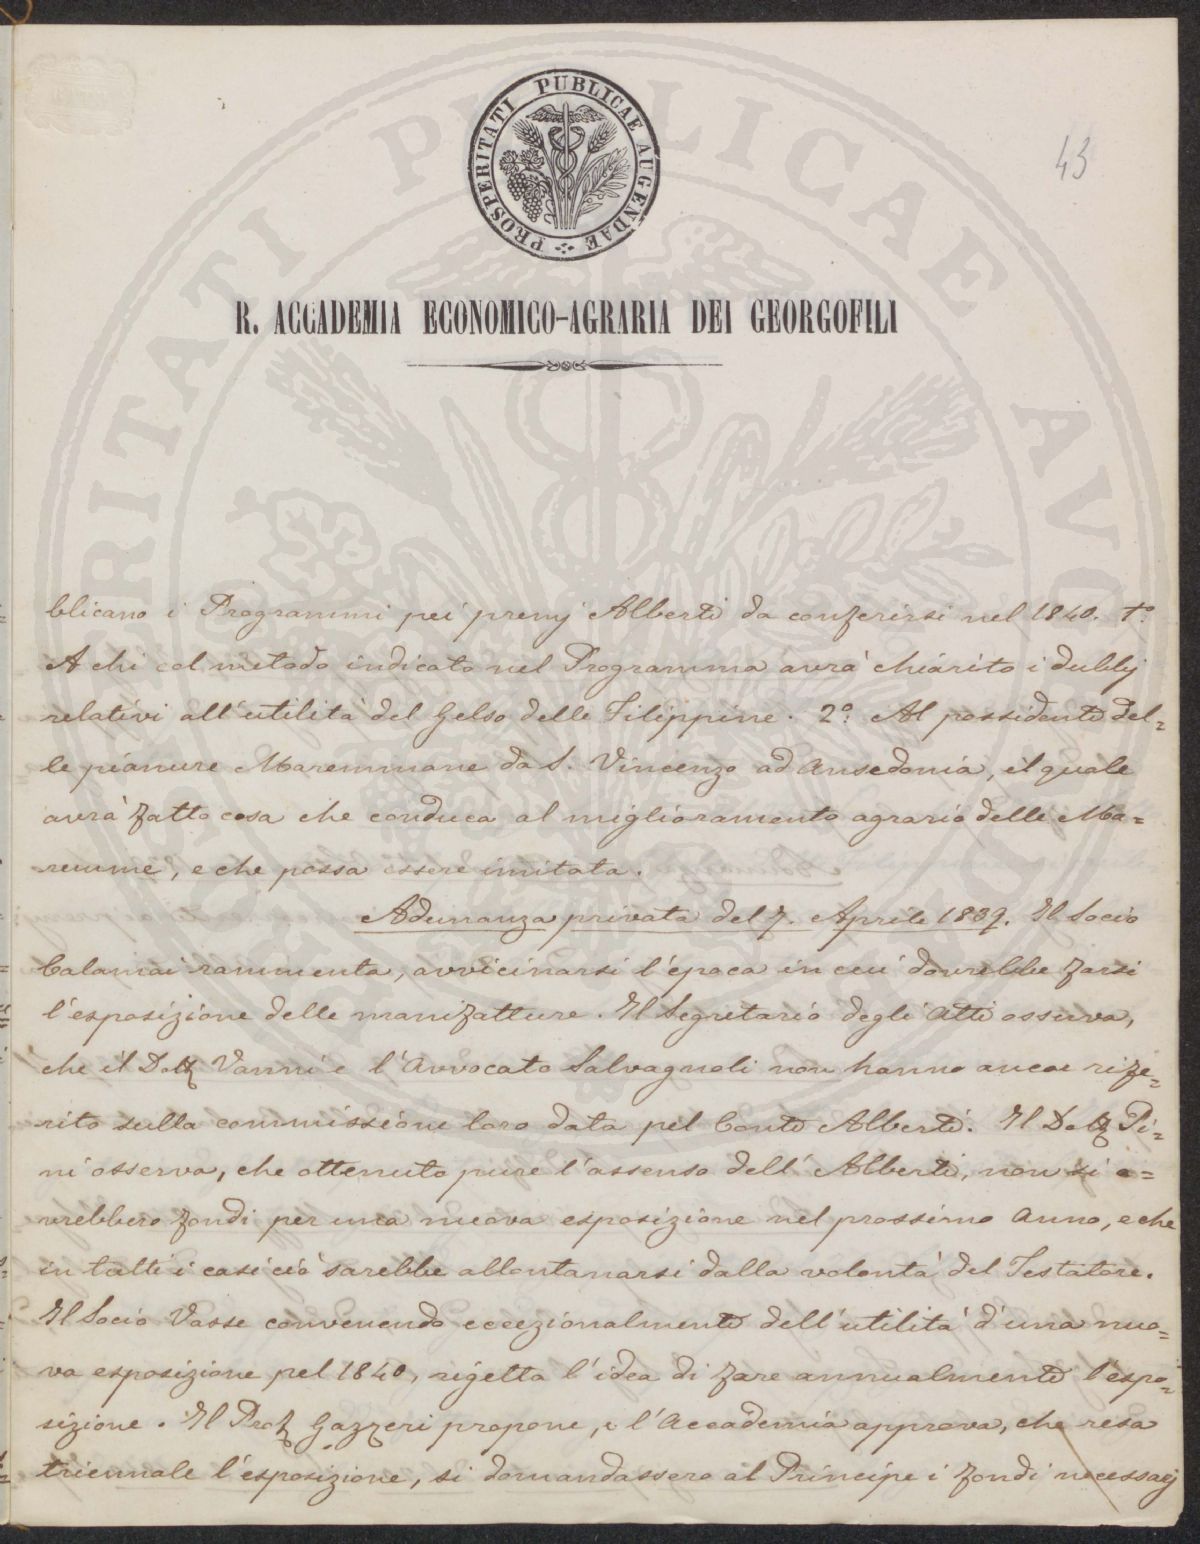 PROSPERITATI PUBLICAE AUGENDAE
43
R. ACCADEMIA ECONOMICO-AGRARIA DEI GEORGOFILI
blicano i Programmi pei premj Alberti da conferirsi nel 1840. 1º.
A chi col metodo indicato nel Programma avrà chiarito i dubbj
relativi all'utilità del Gelso delle Filippine. 2º. Al possidente del=
le pianure Maremmane da S. Vincenzo ad Ansedonia, il quale
avrà fatto cosa che conduca al miglioramento agrario delle Ma=
remme, e che possa essere imitata.
Adunanza privata del 7. Aprile 1839. Il Socio
Calamai rammenta, avvicinarsi l'epoca in cui dovrebbe farsi
l'esposizione delle manifatture. Il Segretario degli Atti osserva,
che il Dott Vanni e l'Avvocato Salvagnoli non hanno ancor rife=
rito sulla commissione loro data pel Conte Alberti. Il Dott Pi=
ni osserva, che ottenuto pure l'assenso dell'Alberti, non si a=
vrebbero fondi per una nuova esposizione nel prossimo Anno, e che
in tutti i casi ciò sarebbe allontanarsi dalla volontà del Testatore.
Il Socio Vasse convenendo eccezionalmente dell'utilità d'una nuo=
va esposizione pel 1840, rigetta l'idea di fare annualmente l'espo=
sizione. Il Prof Gazzeri propone, e l'Accademia approva, che resa
triennale l'esposizione, si domandassero al Principe i fondi necessarj